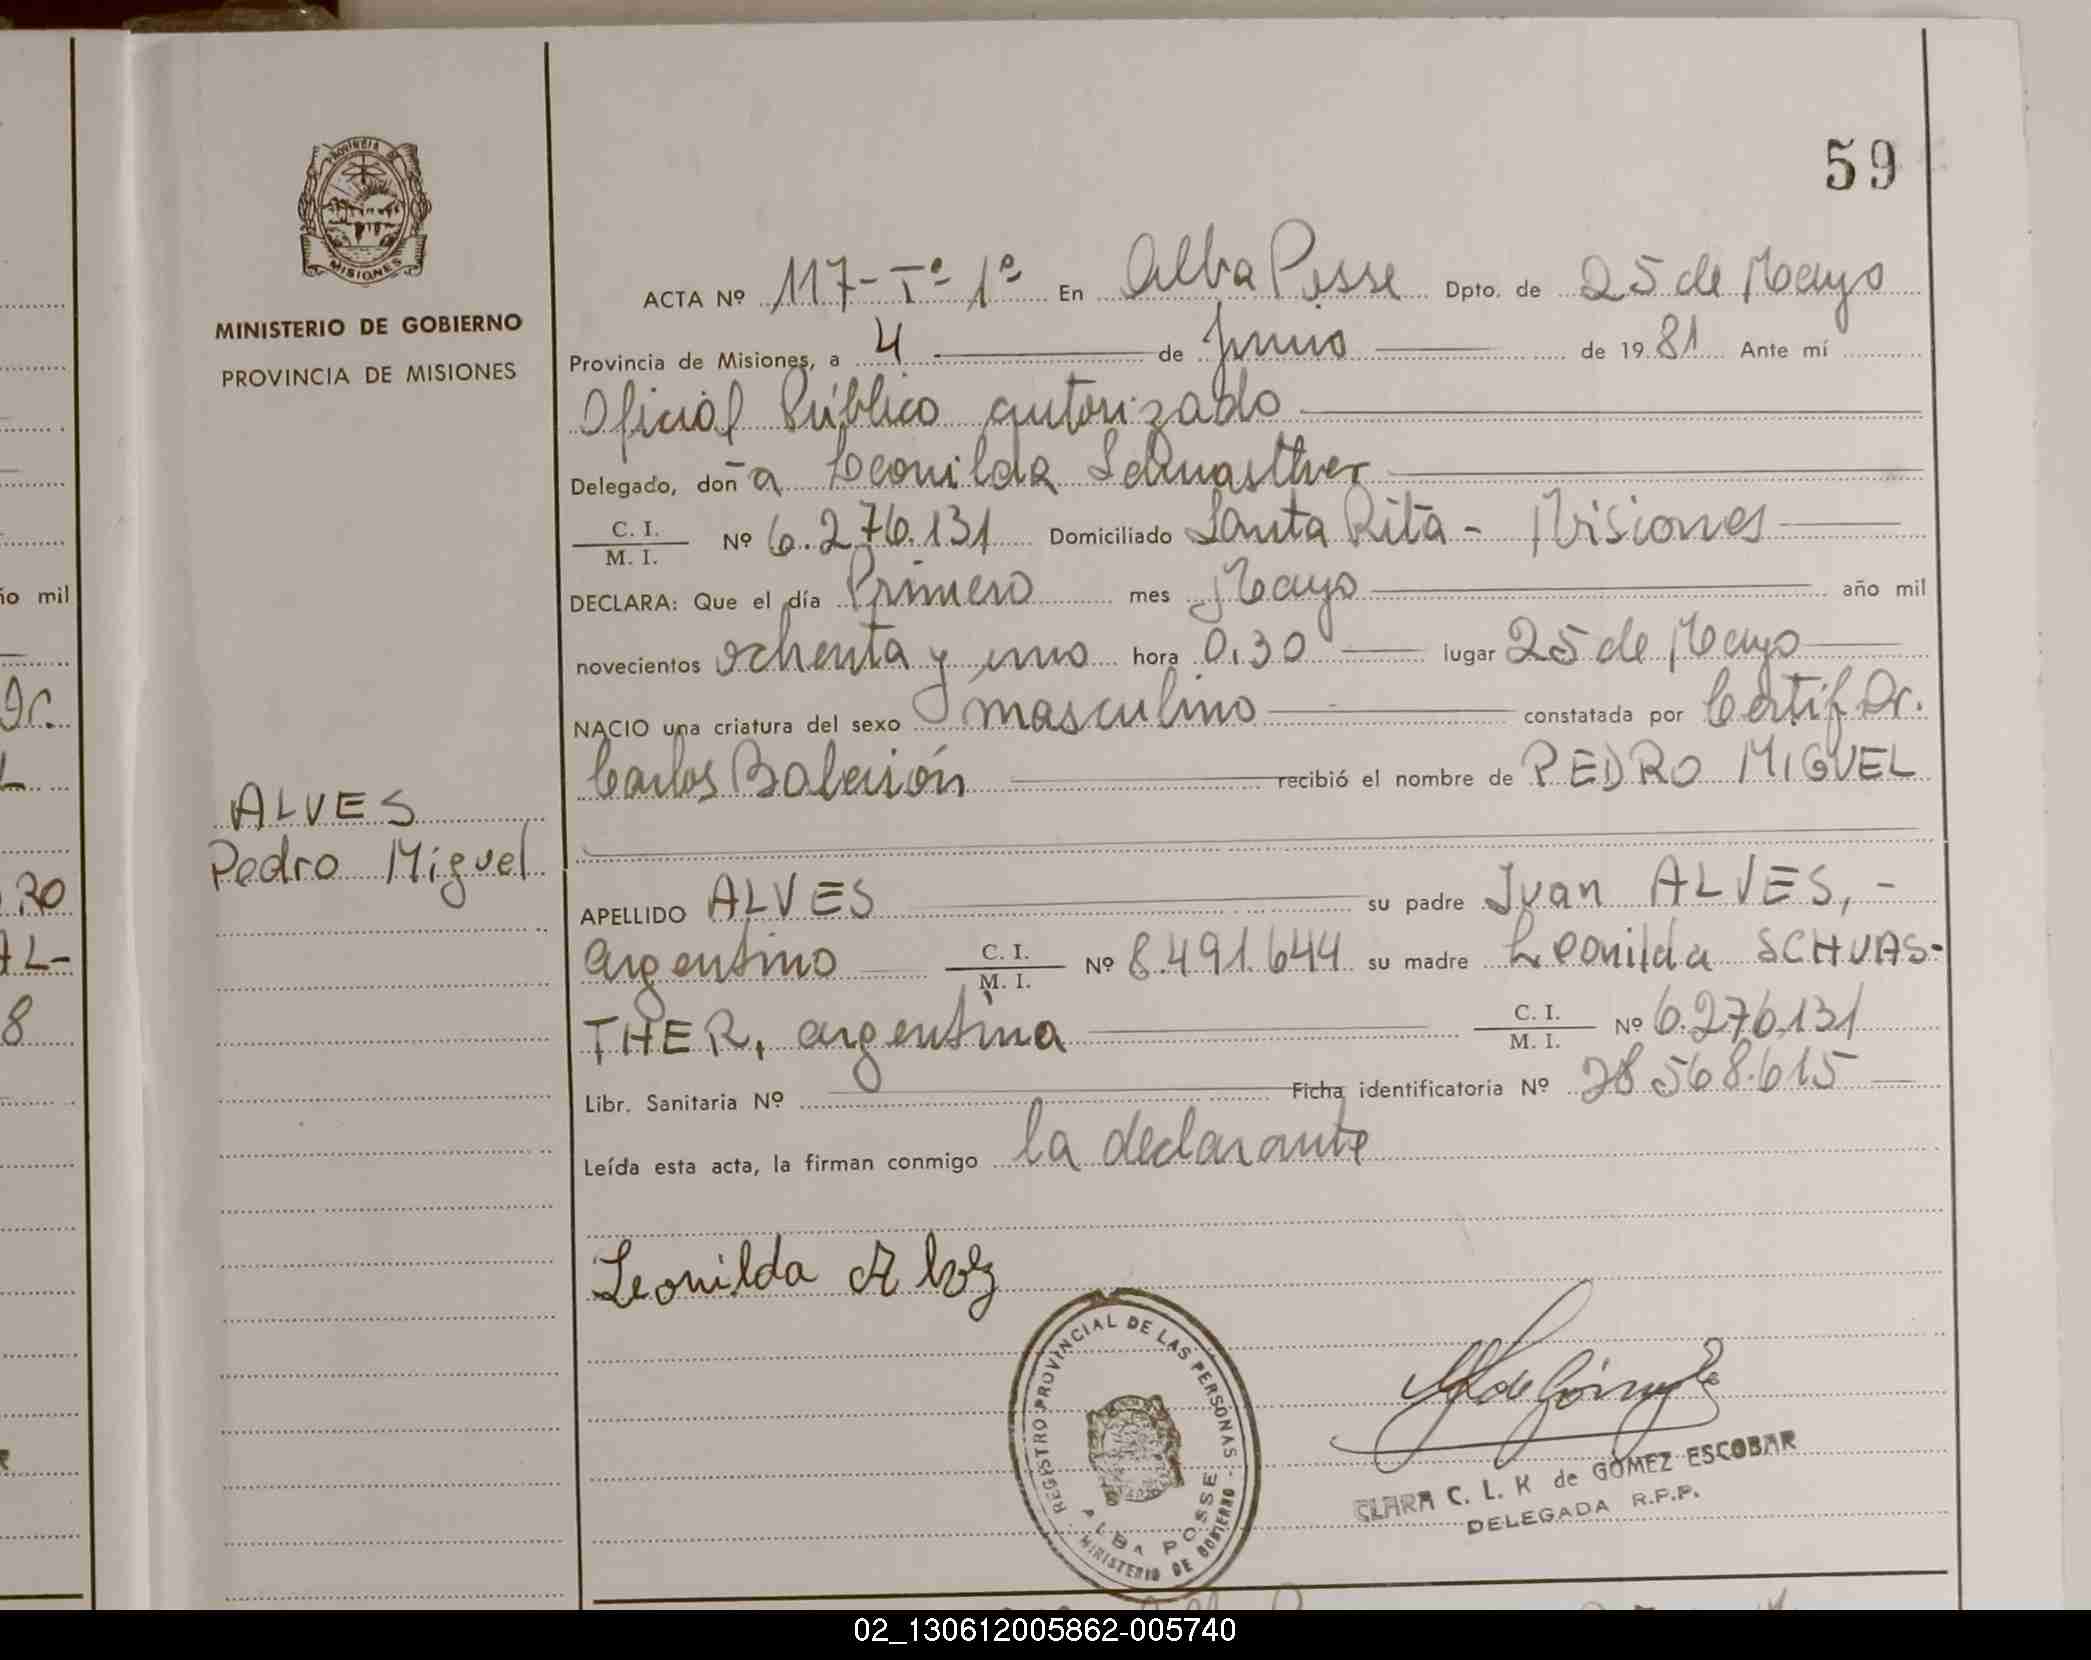 59
PROVINCIA DE
MISIONES
MINISTERIO DE GOBIERNO
PROVINCIA DE MISIONES
ALVES
Pedro Miguel
ACTA Nº 117-Tº 1º En Alba Posse Dpto. de 25 de Mayo
Provincia de Misiones, a 4 de Junio de 1981 Ante mí
Oficial Público autorizado
Delegado, doña Leonilda Schuasther
C. I.
M. I. Nº 6.276.131 Domiciliado Santa Rita - Misiones
DECLARA: Que el día Primero mes Mayo año mil
novecientos ochenta y uno hora 0,30 lugar 25 de Mayo
NACIO una criatura del sexo masculino constatada por Certif Dr.
Carlos recibió el nombre de PEDRO MIGUEL
APELLIDO ALVES su padre Juan ALVES, -
argentino C. I.
M. I. Nº 8.491.644 su madre Leonilda SCHUAS-
THER, argentina C. I.
M. I. Nº 6.276.131
Libr. Sanitaria Nº Ficha identificatoria Nº 28.568.615
Leída esta acta, la firman conmigo la declarante
Leonilda
REGISTRO PROVINCIAL DE LAS PERSONAS
ALBA POSSE
MINISTERIO DE GOBIERNO
CLARA C. L. K de GOMEZ ESCOBAR
DELEGADA R.P.P.
ño mil
Dr.
RO
AL-
8
02_130612005862-005740